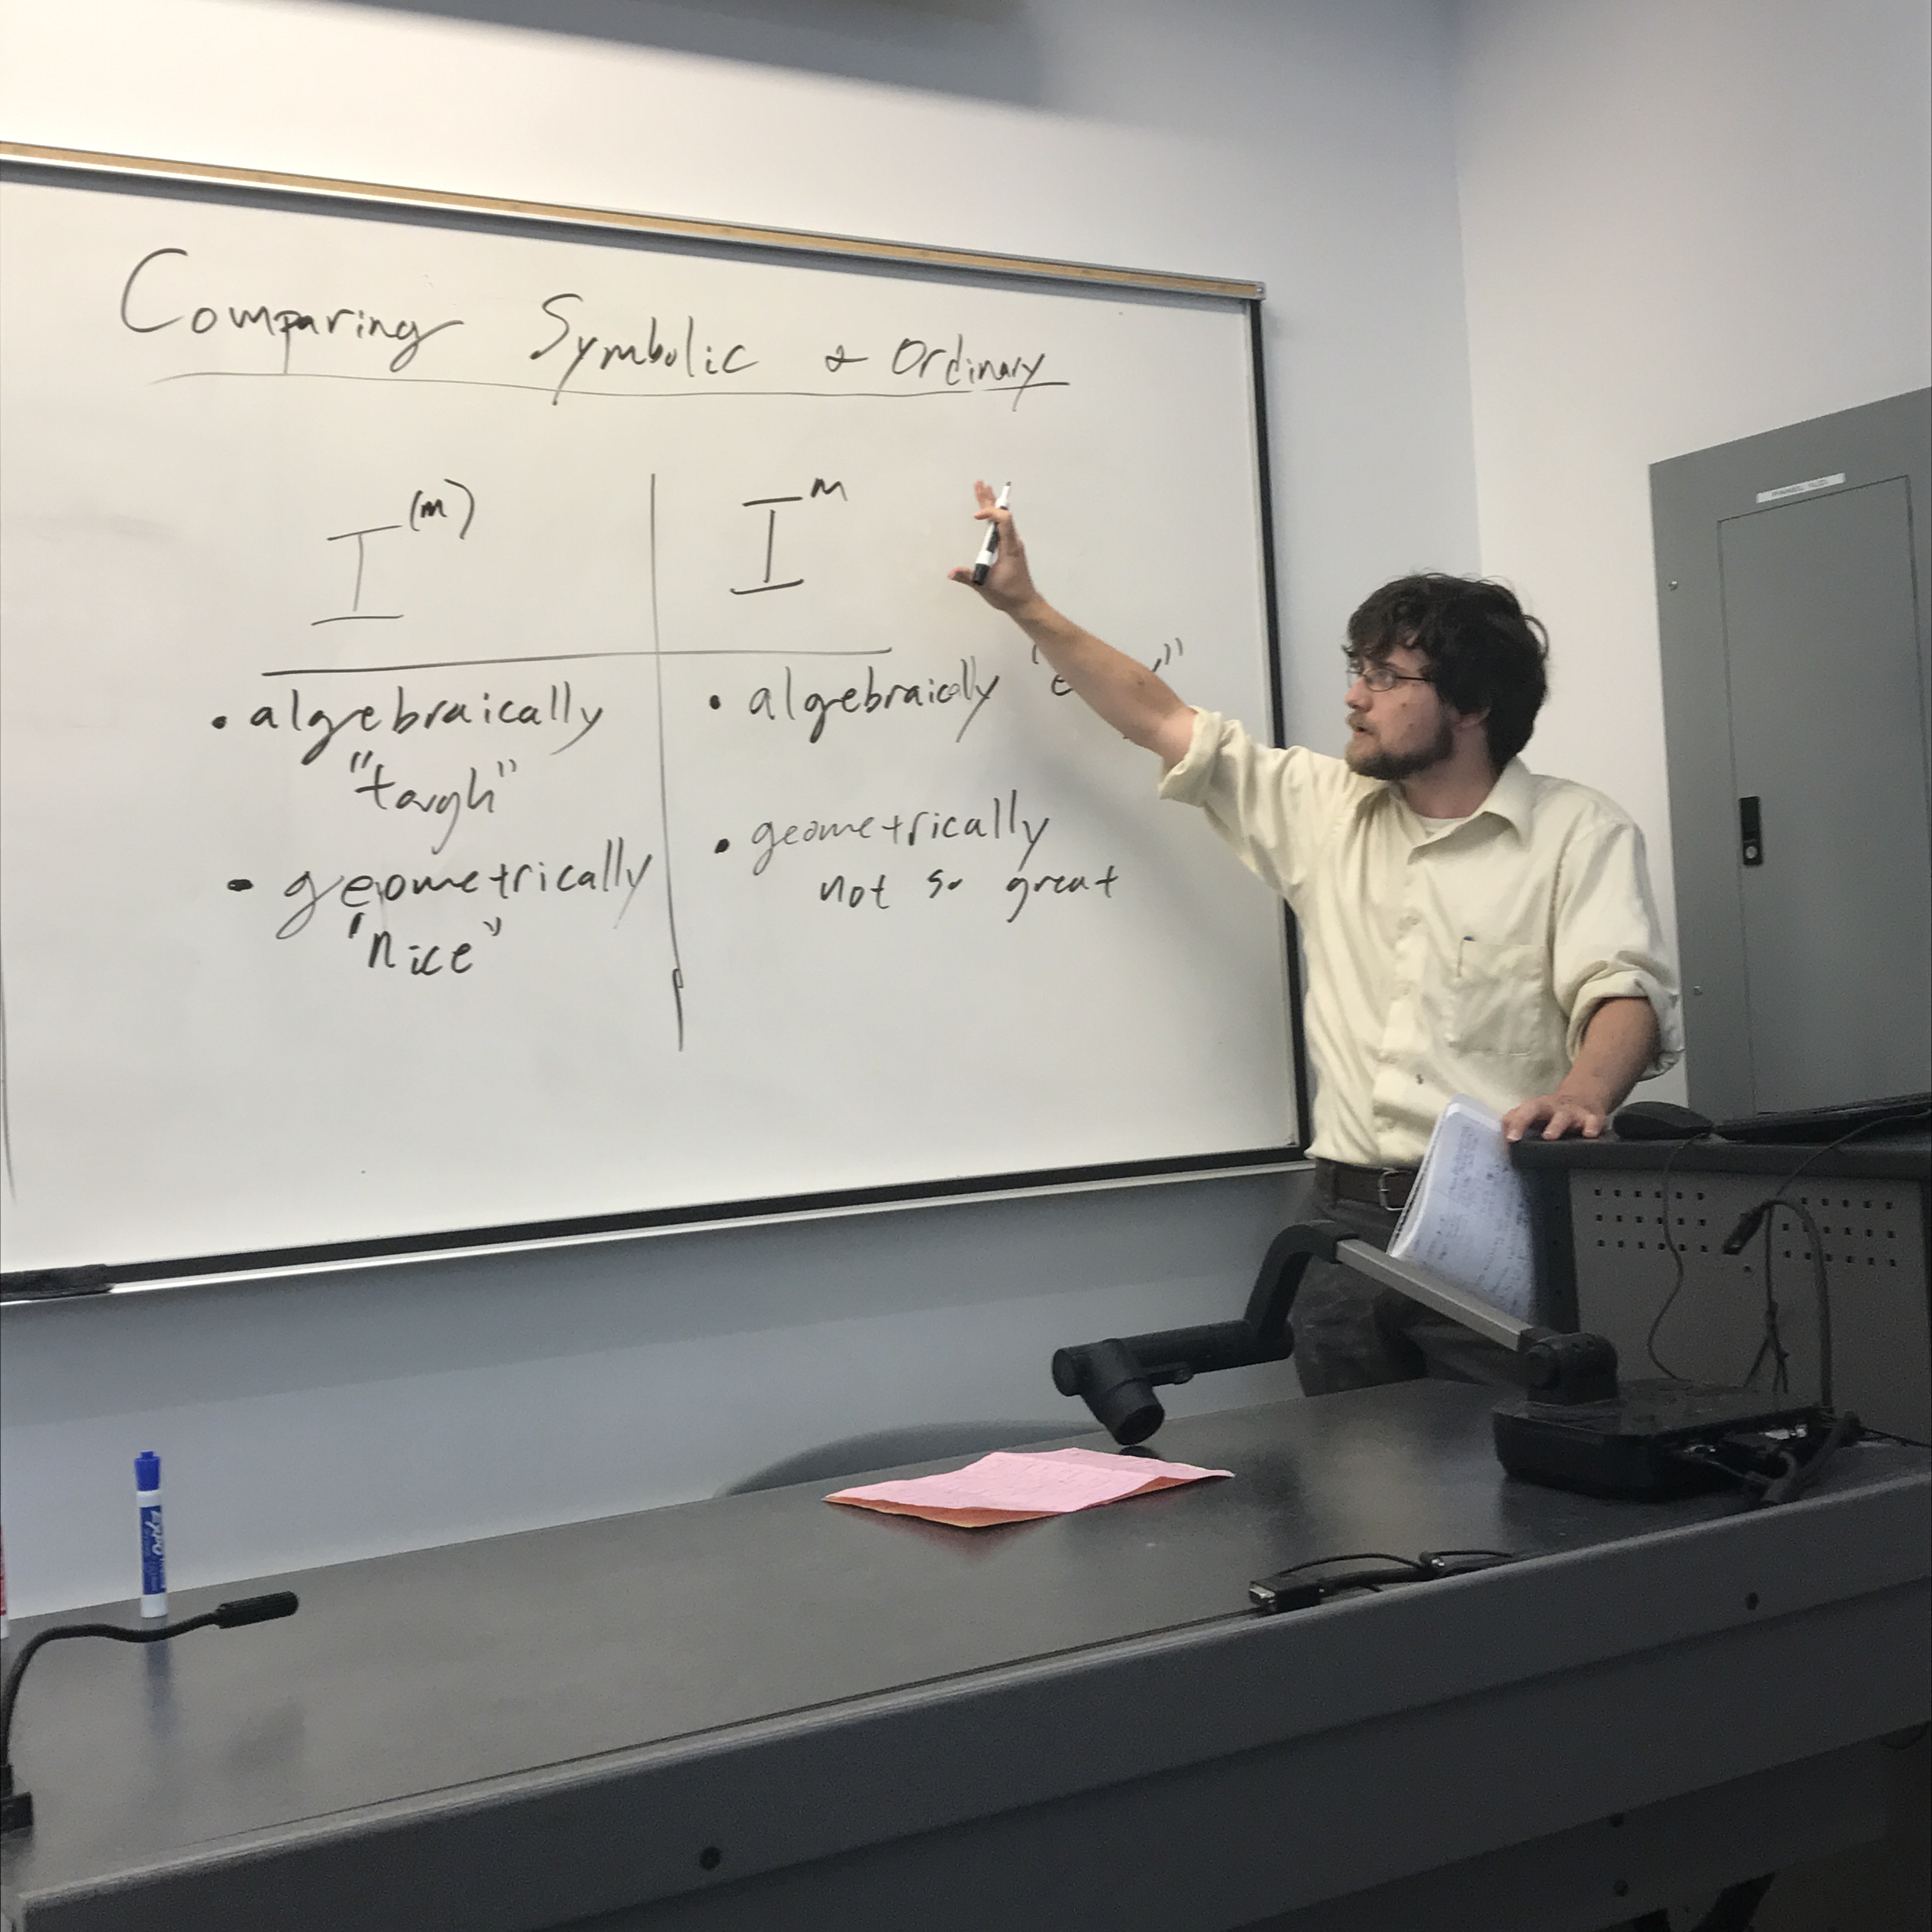 Comparing Symbolic & Ordinary
I^(m)
I^m
• algebraically
"tough"
• geometrically
"nice"
• algebraically
• geometrically
not so great
EXPO